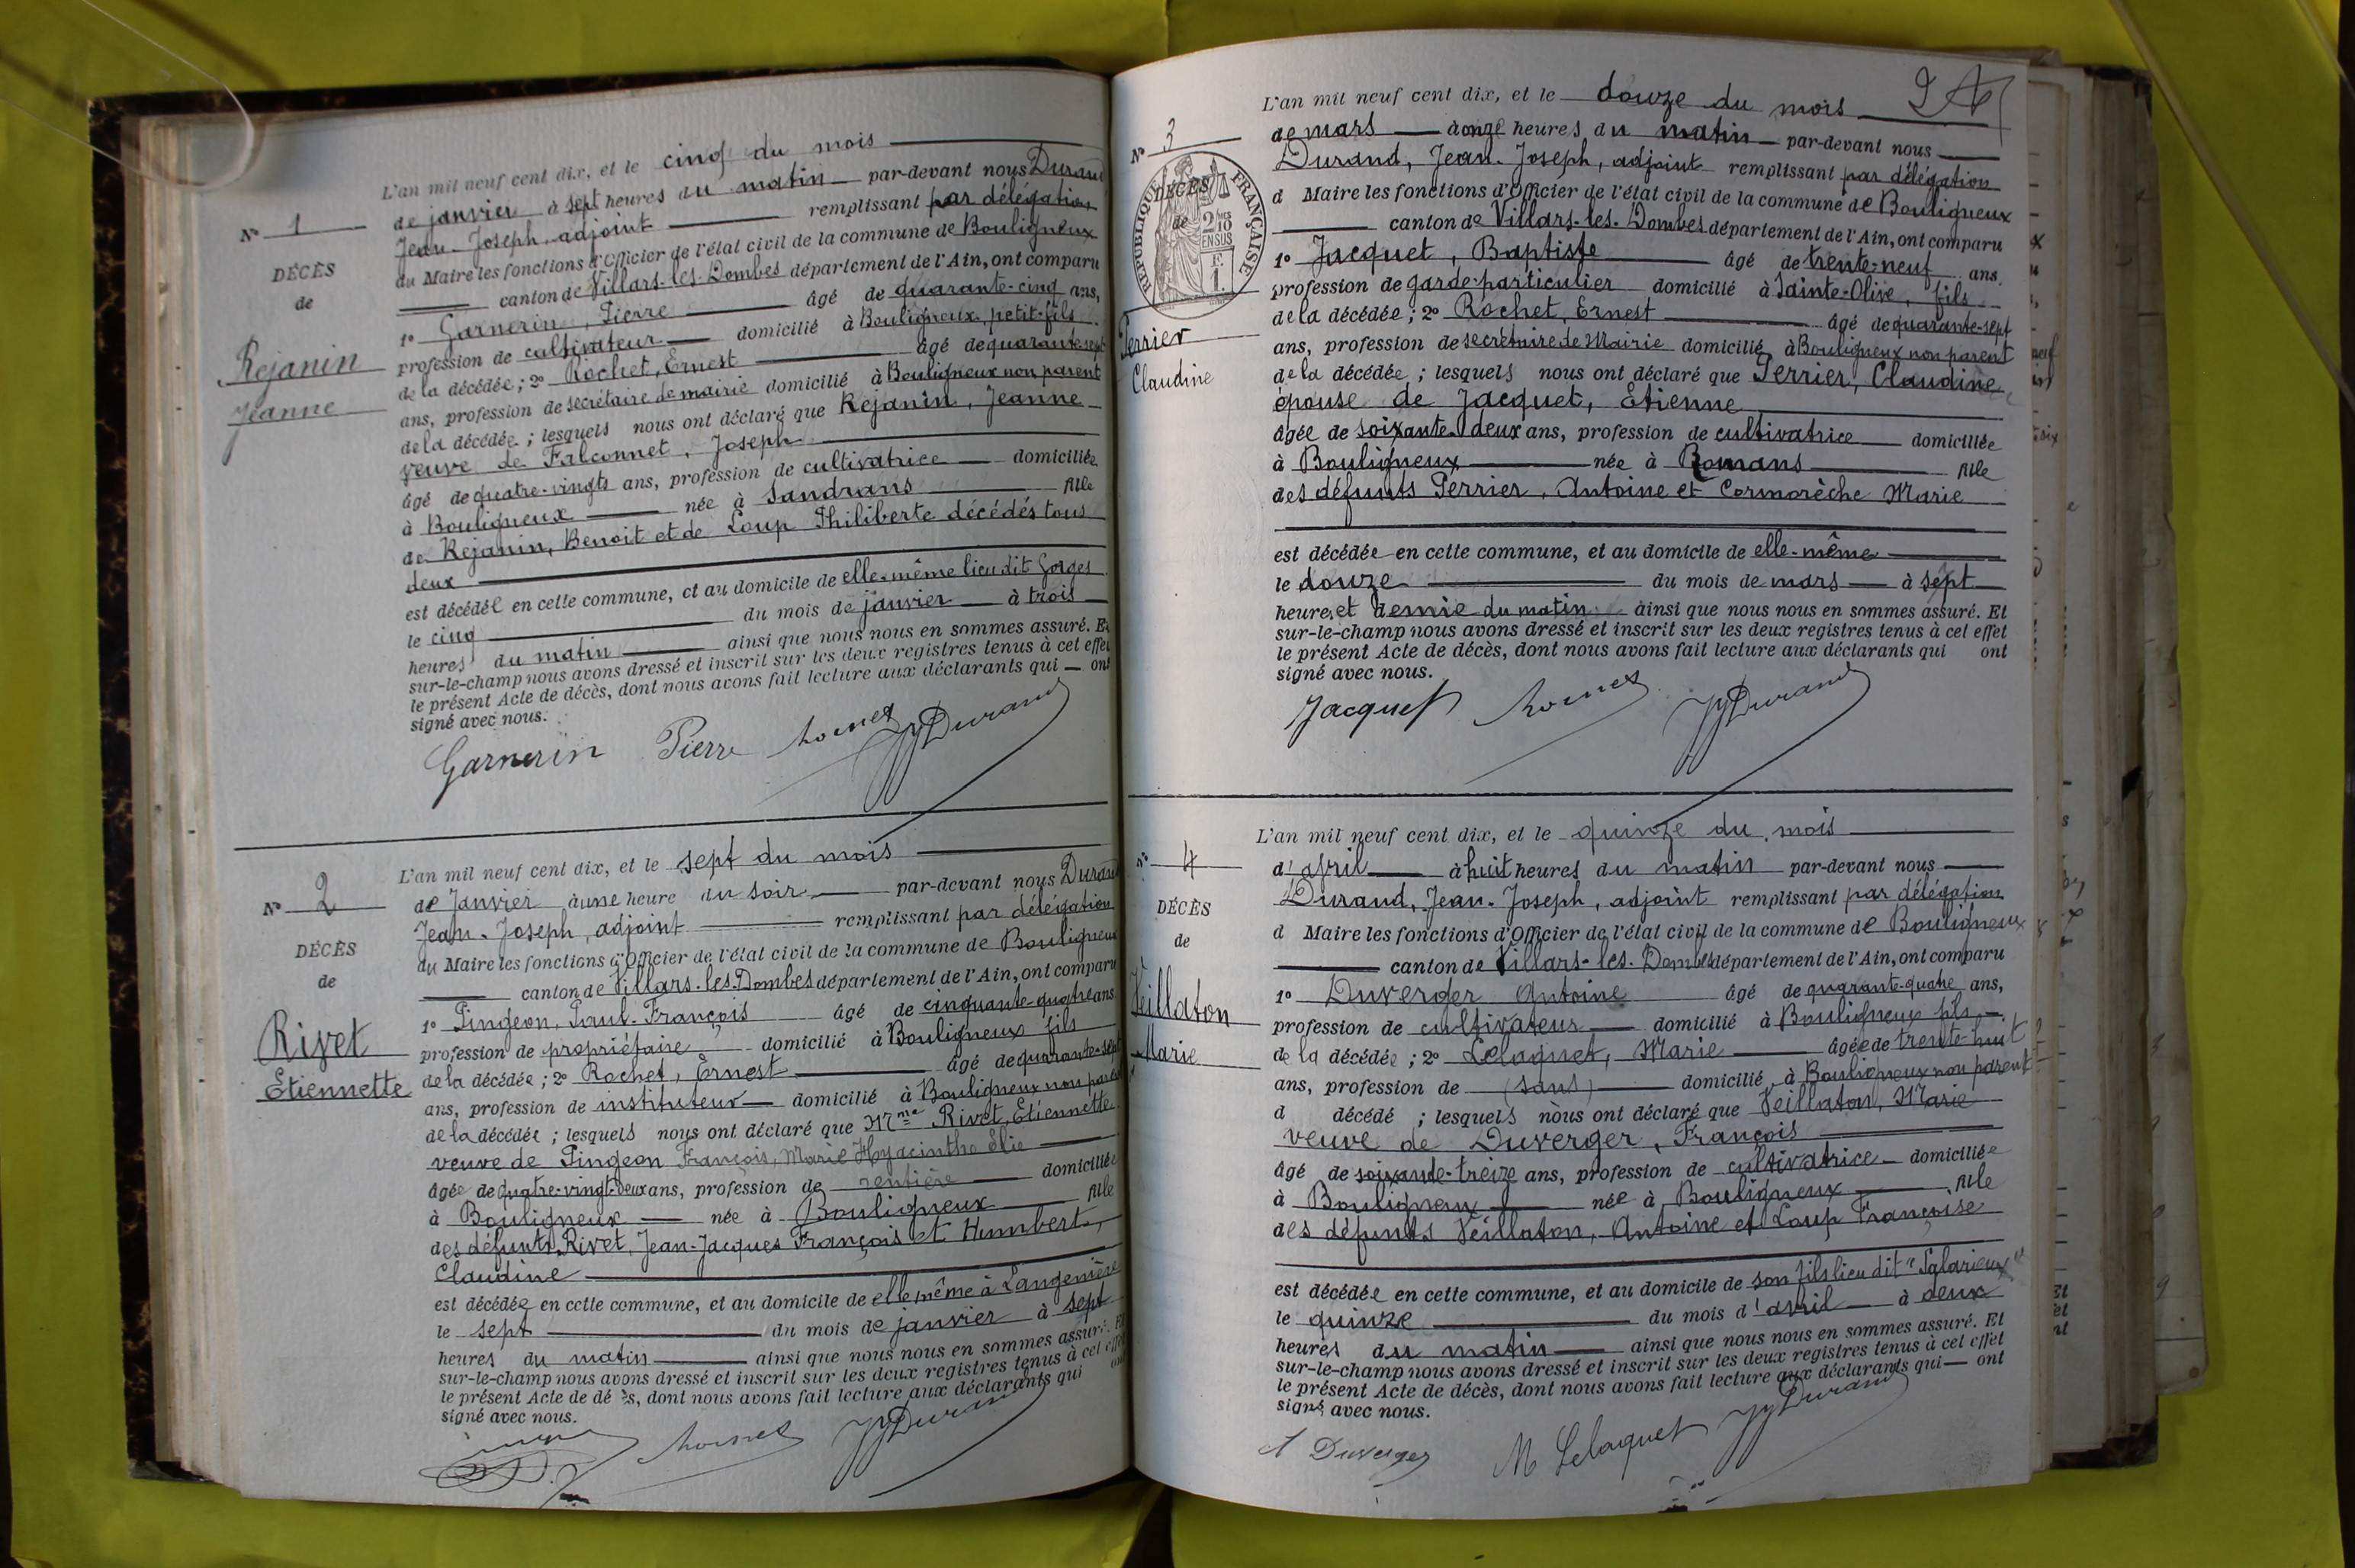 L'an mil neuf cent dix, et le cinq du mois
de janvier à sept heures du matin par-devant nous Durand
Jean-Joseph, adjoint remplissant par délégation
du Maire les fonctions d'Officier de l'état civil de la commune de Bouligneux
canton de Villars-les-Dombes département de l'Ain, ont comparu
1° Garnerin, Pierre âgé de quarante-cinq ans,
profession de cultivateur domicilié à Bouligneux, petit-fils
de la décédée; 2° Rochet, Ernest âgé de quarante-sept
ans, profession de secrétaire de mairie domicilié à Bouligneux non parent
de la décédée; lesquels nous ont déclaré que Rejanin, Jeanne
veuve de Falconnet, Joseph
âgé de quatre-vingts ans, profession de cultivatrice domiciliée
à Bouligneux née à Sandrans fille
de Rejanin, Benoit et de Loup Philiberte décédés tous
deux
est décédée en cette commune, et au domicile de elle-même lieu dit Gorges
le cinq du mois de janvier à trois
heures du matin ainsi que nous nous en sommes assuré. Et
sur-le-champ nous avons dressé et inscrit sur les deux registres tenus à cet effet
le présent Acte de décès, dont nous avons fait lecture aux déclarants qui ont
signé avec nous.
N° 1
DÉCÈS
de
Rejanin
Jeanne
Garnerin Pierre Rochet JJ Durand
L'an mil neuf cent dix, et le sept du mois
de Janvier à une heure du soir par-devant nous Durand
Jean-Joseph, adjoint remplissant par délégation
du Maire les fonctions d'Officier de l'état civil de la commune de Bouligneux
canton de Villars-les-Dombes département de l'Ain, ont comparu
1° Pingeon, Paul-François âgé de cinquante-quatre ans
profession de propriétaire domicilié à Bouligneux fils
de la décédée; 2° Rochet, Ernest âgé de quarante-sept
ans, profession de instituteur domicilié à Bouligneux non parent
de la décédée; lesquels nous ont déclaré que Mme Rivet, Etiennette
veuve de Pingeon François, Marie Hyacinthe Elie
âgée de quatre-vingt-deux ans, profession de rentière domiciliée
à Bouligneux née à Bouligneux fille
des défunts Rivet, Jean-Jacques François et Humbert,
Claudine
est décédée en cette commune, et au domicile de elle même à Langenière
le sept du mois de janvier à sept
heures du matin ainsi que nous nous en sommes assuré. Et
sur-le-champ nous avons dressé et inscrit sur les deux registres tenus à cet effet
le présent Acte de dé ès, dont nous avons fait lecture aux déclarants qui ont
signé avec nous.
N° 2
DÉCÈS
de
Rivet
Etiennette
Rochet JJ Durand
L'an mil neuf cent dix, et le douze du mois
de mars à onze heures du matin par-devant nous
Durand, Jean-Joseph, adjoint remplissant par délégation
d Maire les fonctions d'Officier de l'état civil de la commune de Bouligneux
canton de Villars-les-Dombes département de l'Ain, ont comparu
1° Jacquet, Baptiste âgé de trente-neuf ans
profession de garde-particulier domicilié à Sainte-Olive, fils
de la décédée; 2° Rochet, Ernest âgé de quarante-sept
ans, profession de secrétaire de Mairie domicilié à Bouligneux non parent
de la décédée; lesquels nous ont déclaré que Perrier, Claudine,
épouse de Jacquet, Etienne
âgée de soixante-deux ans, profession de cultivatrice domiciliée
à Bouligneux née à Romans fille
des défunts Perrier, Antoine et Cormorèche Marie
est décédée en cette commune, et au domicile de elle-même
le douze du mois de mars à sept
heures et demie du matin ainsi que nous nous en sommes assuré. Et
sur-le-champ nous avons dressé et inscrit sur les deux registres tenus à cet effet
le présent Acte de décès, dont nous avons fait lecture aux déclarants qui ont
signé avec nous.
N° 3
RÉPUBLIQUE FRANÇAISE
DÉCÈS
de
2/10mes
EN SUS
F.
1.
Perrier
Claudine
Jacquet Rochet JJ Durand
L'an mil neuf cent dix, et le quinze du mois
d'avril à huit heures du matin par-devant nous
Durand, Jean-Joseph, adjoint remplissant par délégation
d Maire les fonctions d'Officier de l'état civil de la commune de Bouligneux
canton de Villars-les-Dombes département de l'Ain, ont comparu
1° Duverger Antoine âgé de quarante-quatre ans,
profession de cultivateur domicilié à Bouligneux fils
de la décédée; 2° Lelaquet, Marie âgée de trente-huit
ans, profession de (sans) domicilié à Bouligneux non parent
d décédé ; lesquels nous ont déclaré que Veillaton, Marie
veuve de Duverger, François
âgé de soixante-treize ans, profession de cultivatrice domiciliée
à Bouligneux née à Bouligneux fille
des défunts Veillaton, Antoine et Loup Françoise
est décédée en cette commune, et au domicile de son fils lieu dit "Salarieux"
le quinze du mois d'avril à deux
heures du matin ainsi que nous nous en sommes assuré. Et
sur-le-champ nous avons dressé et inscrit sur les deux registres tenus à cet effet
le présent Acte de décès, dont nous avons fait lecture aux déclarants qui ont
signé avec nous.
N° 4
DÉCÈS
de
Veillaton
Marie
A Duverger M Lelaquet JJ Durand